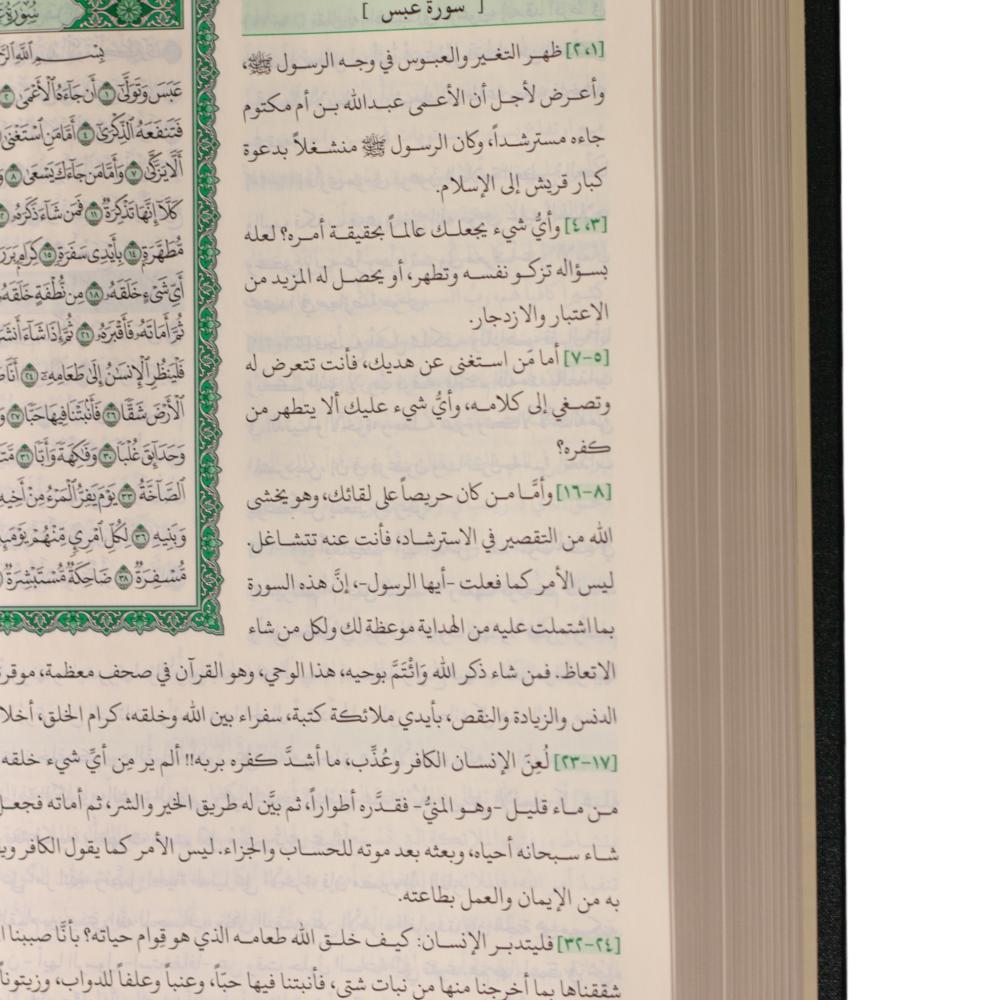 [ سورة عبس ]
[٢،١] ظهر التغير والعبوس في وجه الرسول ﷺ،
وأعرض لأجل أن الأعمى عبدالله بن أم مكتوم
جاءه مسترشداً، وكان الرسول ﷺ منشغلاً بدعوة
كبار قريش إلى الإسلام.
[٤،٣] وأيُّ شيء يجعلك عالماً بحقيقة أمره؟ لعله
بسؤاله تزكو نفسه وتطهر، أو يحصل له المزيد من
الاعتبار والازدجار.
[٥-٧] أما مَن استغنى عن هديك، فأنت تتعرض له
وتصغي إلى كلامه، وأيُّ شيء عليك ألا يتطهر من
كفره؟
[٨-١٦] وأمَّا من كان حريصاً على لقائك، وهو يخشى
الله من التقصير في الاسترشاد، فأنت عنه تتشاغل.
ليس الأمر كما فعلت -أيها الرسول-، إنَّ هذه السورة
بما اشتملت عليه من الهداية موعظة لك ولكل من شاء
الاتعاظ. فمن شاء ذكر الله وَائْتَمَّ بوحيه، هذا الوحي، وهو القرآن في صحف معظمة، موقر
الدنس والزيادة والنقص، بأيدي ملائكة كتبة، سفراء بين الله وخلقه، كرام الخلق، أخلا
[١٧-٢٣] لُعِنَ الإنسان الكافر وعُذِّب، ما أشدَّ كفره بربه!! ألم ير مِن أيِّ شيء خلقه
من ماء قليل -وهو المنيُّ- فقدَّره أطواراً، ثم بيَّن له طريق الخير والشر، ثم أماته فجعل
شاء سبحانه أحياه، وبعثه بعد موته للحساب والجزاء. ليس الأمر كما يقول الكافر وي
به من الإيمان والعمل بطاعته.
[٢٤-٣٢] فليتدبر الإنسان: كيف خلق الله طعامه الذي هو قِوام حياته؟ بأنَّا صببنا ا
شققناها بما أخرجنا منها من نبات شتى، فأنبتنا فيها حبّاً، وعنباً وعلفاً للدواب، وزيتوناً
عَبَسَ وَتَوَلَّىٰ ١ أَن جَآءَهُ ٱلْأَعْمَىٰ ٢
فَتَنفَعَهُ ٱلذِّكْرَىٰ ٤ أَمَّا مَنِ ٱسْتَغْنَىٰ
أَلَّا يَزَّكَّىٰ ٧ وَأَمَّا مَن جَآءَكَ يَسْعَىٰ ٨
كَلَّآ إِنَّهَا تَذْكِرَةٌ ١١ فَمَن شَآءَ ذَكَرَهُۥ
مُّطَهَّرَةٍۭ ١٤ بِأَيْدِى سَفَرَةٍ ١٥ كِرَامٍۭ بَرَرَ
أَىِّ شَىْءٍ خَلَقَهُۥ ١٨ مِن نُّطْفَةٍ خَلَقَهُۥ
ثُمَّ أَمَاتَهُۥ فَأَقْبَرَهُۥ ٢١ ثُمَّ إِذَا شَآءَ أَنشَرَ
فَلْيَنظُرِ ٱلْإِنسَٰنُ إِلَىٰ طَعَامِهِۦٓ ٢٤ أَنَّا
ٱلْأَرْضَ شَقًّا ٢٦ فَأَنۢبَتْنَا فِيهَا حَبًّا ٢٧
وَحَدَآئِقَ غُلْبًا ٣٠ وَفَٰكِهَةً وَأَبًّا ٣١
ٱلصَّآخَّةُ ٣٣ يَوْمَ يَفِرُّ ٱلْمَرْءُ مِنْ أَخِيهِ
وَبَنِيهِ ٣٦ لِكُلِّ ٱمْرِئٍ مِّنْهُمْ يَوْمَئِ
مُّسْفِرَةٌ ٣٨ ضَاحِكَةٌ مُّسْتَبْشِرَةٌ